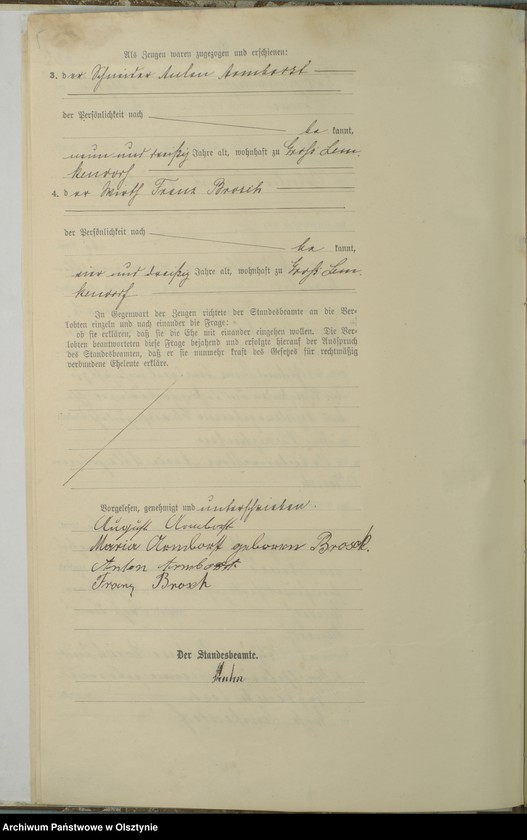 Als Zeugen waren zugezogen und erschienen:
3. der Schneider Anton Armborst
der Persönlichkeit nach
be kannt,
neun und dreißig Jahre alt, wohnhaft zu Groß Lem-
kendorf
4. der Wirth Franz Brosch
der Persönlichkeit nach
be kannt,
vier und dreißig Jahre alt, wohnhaft zu Groß Lem-
kendorf
In Gegenwart der Zeugen richtete der Standesbeamte an die Ver-
lobten einzeln und nach einander die Frage:
ob sie erklären, daß sie die Ehe mit einander eingehen wollen. Die Ver-
lobten beantworteten diese Frage bejahend und erfolgte hierauf der Ausspruch
des Standesbeamten, daß er sie nunmehr kraft des Gesetzes für rechtmäßig
verbundene Eheleute erkläre.
Vorgelesen, genehmigt und unterschrieben.
August Armborst
Maria Armborst geboren Brosch.
Anton Armborst.
Franz Brosch
Der Standesbeamte.
Archiwum Państwowe w Olsztynie